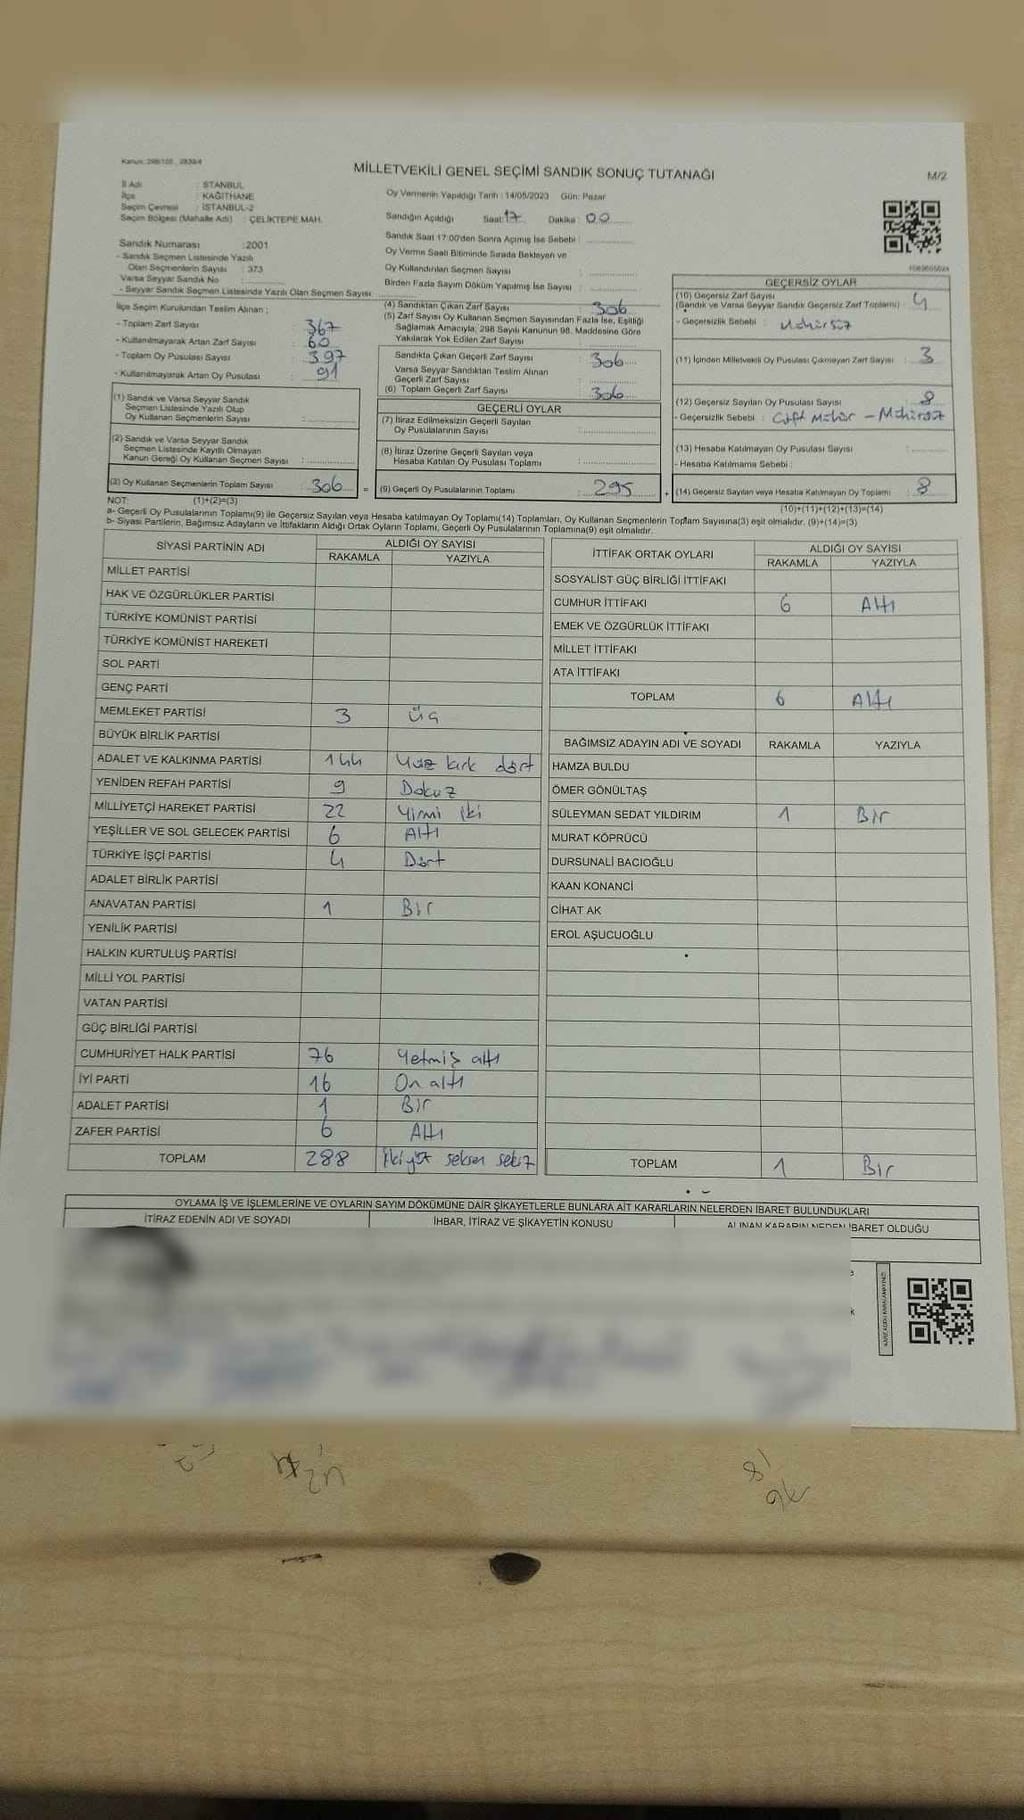 Kanun: 298/105 , 2839/4
MİLLETVEKİLİ GENEL SEÇİMİ SANDIK SONUÇ TUTANAĞI
M/2
İl Adı : İSTANBUL
İlçe : KAĞITHANE
Seçim Çevresi : İSTANBUL-2
Seçim Bölgesi (Mahalle Adı) : ÇELİKTEPE MAH.
Oy Vermenin Yapıldığı Tarih : 14/05/2023 Gün: Pazar
Sandığın Açıldığı Saat: 17 Dakika : 00
Sandık Saat 17:00'den Sonra Açılmış İse Sebebi :
Oy Verme Saati Bitiminde Sırada Bekleyen ve
Oy Kullandırılan Seçmen Sayısı :
Birden Fazla Sayım Döküm Yapılmış İse Sayısı :
Sandık Numarası : 2001
- Sandık Seçmen Listesinde Yazılı
Olan Seçmenlerin Sayısı : 373
Varsa Seyyar Sandık No :
- Seyyar Sandık Seçmen Listesinde Yazılı Olan Seçmen Sayısı:
İlçe Seçim Kurulundan Teslim Alınan ;
- Toplam Zarf Sayısı : 367
- Kullanılmayarak Artan Zarf Sayısı : 60
- Toplam Oy Pusulası Sayısı : 397
- Kullanılmayarak Artan Oy Pusulası : 91
(1) Sandık ve Varsa Seyyar Sandık
Seçmen Listesinde Yazılı Olup
Oy Kullanan Seçmenlerin Sayısı :
(2) Sandık ve Varsa Seyyar Sandık
Seçmen Listesinde Kayıtlı Olmayan
Kanun Gereği Oy Kullanan Seçmen Sayısı :
(3) Oy Kullanan Seçmenlerin Toplam Sayısı : 306 =
(4) Sandıktan Çıkan Zarf Sayısı : 306
(5) Zarf Sayısı Oy Kullanan Seçmen Sayısından Fazla İse, Eşitliği
Sağlamak Amacıyla, 298 Sayılı Kanunun 98. Maddesine Göre
Yakılarak Yok Edilen Zarf Sayısı :
Sandıkta Çıkan Geçerli Zarf Sayısı : 306
Varsa Seyyar Sandıktan Teslim Alınan
Geçerli Zarf Sayısı :
(6) Toplam Geçerli Zarf Sayısı : 306
GEÇERLİ OYLAR
(7) İtiraz Edilmeksizin Geçerli Sayılan
Oy Pusulalarının Sayısı :
(8) İtiraz Üzerine Geçerli Sayılan veya
Hesaba Katılan Oy Pusulası Toplamı :
(9) Geçerli Oy Pusulalarının Toplamı : 295 +
GEÇERSİZ OYLAR
(10) Geçersiz Zarf Sayısı
(Sandık ve Varsa Seyyar Sandık Geçersiz Zarf Toplamı) : 4
- Geçersizlik Sebebi : Mühürsüz
(11) İçinden Milletvekili Oy Pusulası Çıkmayan Zarf Sayısı : 3
(12) Geçersiz Sayılan Oy Pusulası Sayısı : 8
- Geçersizlik Sebebi : Çift Mühür - Mühürsüz
(13) Hesaba Katılmayan Oy Pusulası Sayısı :
- Hesaba Katılmama Sebebi :
(14) Geçersiz Sayılan veya Hesaba Katılmayan Oy Toplamı : 8
NOT: (1)+(2)=(3)
(10)+(11)+(12)+(13)=(14)
a- Geçerli Oy Pusulalarının Toplamı(9) ile Geçersiz Sayılan veya Hesaba katılmayan Oy Toplamı(14) Toplamları, Oy Kullanan Seçmenlerin Toplam Sayısına(3) eşit olmalıdır. (9)+(14)=(3)
b- Siyasi Partilerin, Bağımsız Adayların ve İttifakların Aldığı Ortak Oyların Toplamı, Geçerli Oy Pusulalarının Toplamına(9) eşit olmalıdır.
SİYASİ PARTİNİN ADI ALDIĞI OY SAYISI
RAKAMLA YAZIYLA
MİLLET PARTİSİ
HAK VE ÖZGÜRLÜKLER PARTİSİ
TÜRKİYE KOMÜNİST PARTİSİ
TÜRKİYE KOMÜNİST HAREKETİ
SOL PARTİ
GENÇ PARTİ
MEMLEKET PARTİSİ 3 Üç
BÜYÜK BİRLİK PARTİSİ
ADALET VE KALKINMA PARTİSİ 144 Yüz kırk dört
YENİDEN REFAH PARTİSİ 9 Dokuz
MİLLİYETÇİ HAREKET PARTİSİ 22 Yirmi iki
YEŞİLLER VE SOL GELECEK PARTİSİ 6 Altı
TÜRKİYE İŞÇİ PARTİSİ 4 Dört
ADALET BİRLİK PARTİSİ
ANAVATAN PARTİSİ 1 Bir
YENİLİK PARTİSİ
HALKIN KURTULUŞ PARTİSİ
MİLLİ YOL PARTİSİ
VATAN PARTİSİ
GÜÇ BİRLİĞİ PARTİSİ
CUMHURİYET HALK PARTİSİ 76 Yetmiş altı
İYİ PARTİ 16 On altı
ADALET PARTİSİ 1 Bir
ZAFER PARTİSİ 6 Altı
TOPLAM 288 İkiyüz seksen sekiz
İTTİFAK ORTAK OYLARI ALDIĞI OY SAYISI
RAKAMLA YAZIYLA
SOSYALİST GÜÇ BİRLİĞİ İTTİFAKI
CUMHUR İTTİFAKI 6 Altı
EMEK VE ÖZGÜRLÜK İTTİFAKI
MİLLET İTTİFAKI
ATA İTTİFAKI
TOPLAM 6 Altı
BAĞIMSIZ ADAYIN ADI VE SOYADI RAKAMLA YAZIYLA
HAMZA BULDU
ÖMER GÖNÜLTAŞ
SÜLEYMAN SEDAT YILDIRIM 1 Bir
MURAT KÖPRÜCÜ
DURSUNALİ BACIOĞLU
KAAN KONANCİ
CİHAT AK
EROL AŞUCUOĞLU
TOPLAM 1 Bir
OYLAMA İŞ VE İŞLEMLERİNE VE OYLARIN SAYIM DÖKÜMÜNE DAİR ŞİKAYETLERLE BUNLARA AİT KARARLARIN NELERDEN İBARET BULUNDUKLARI
İTİRAZ EDENİN ADI VE SOYADI İHBAR, İTİRAZ VE ŞİKAYETİN KONUSU ALINAN KARARIN NEDEN İBARET OLDUĞU